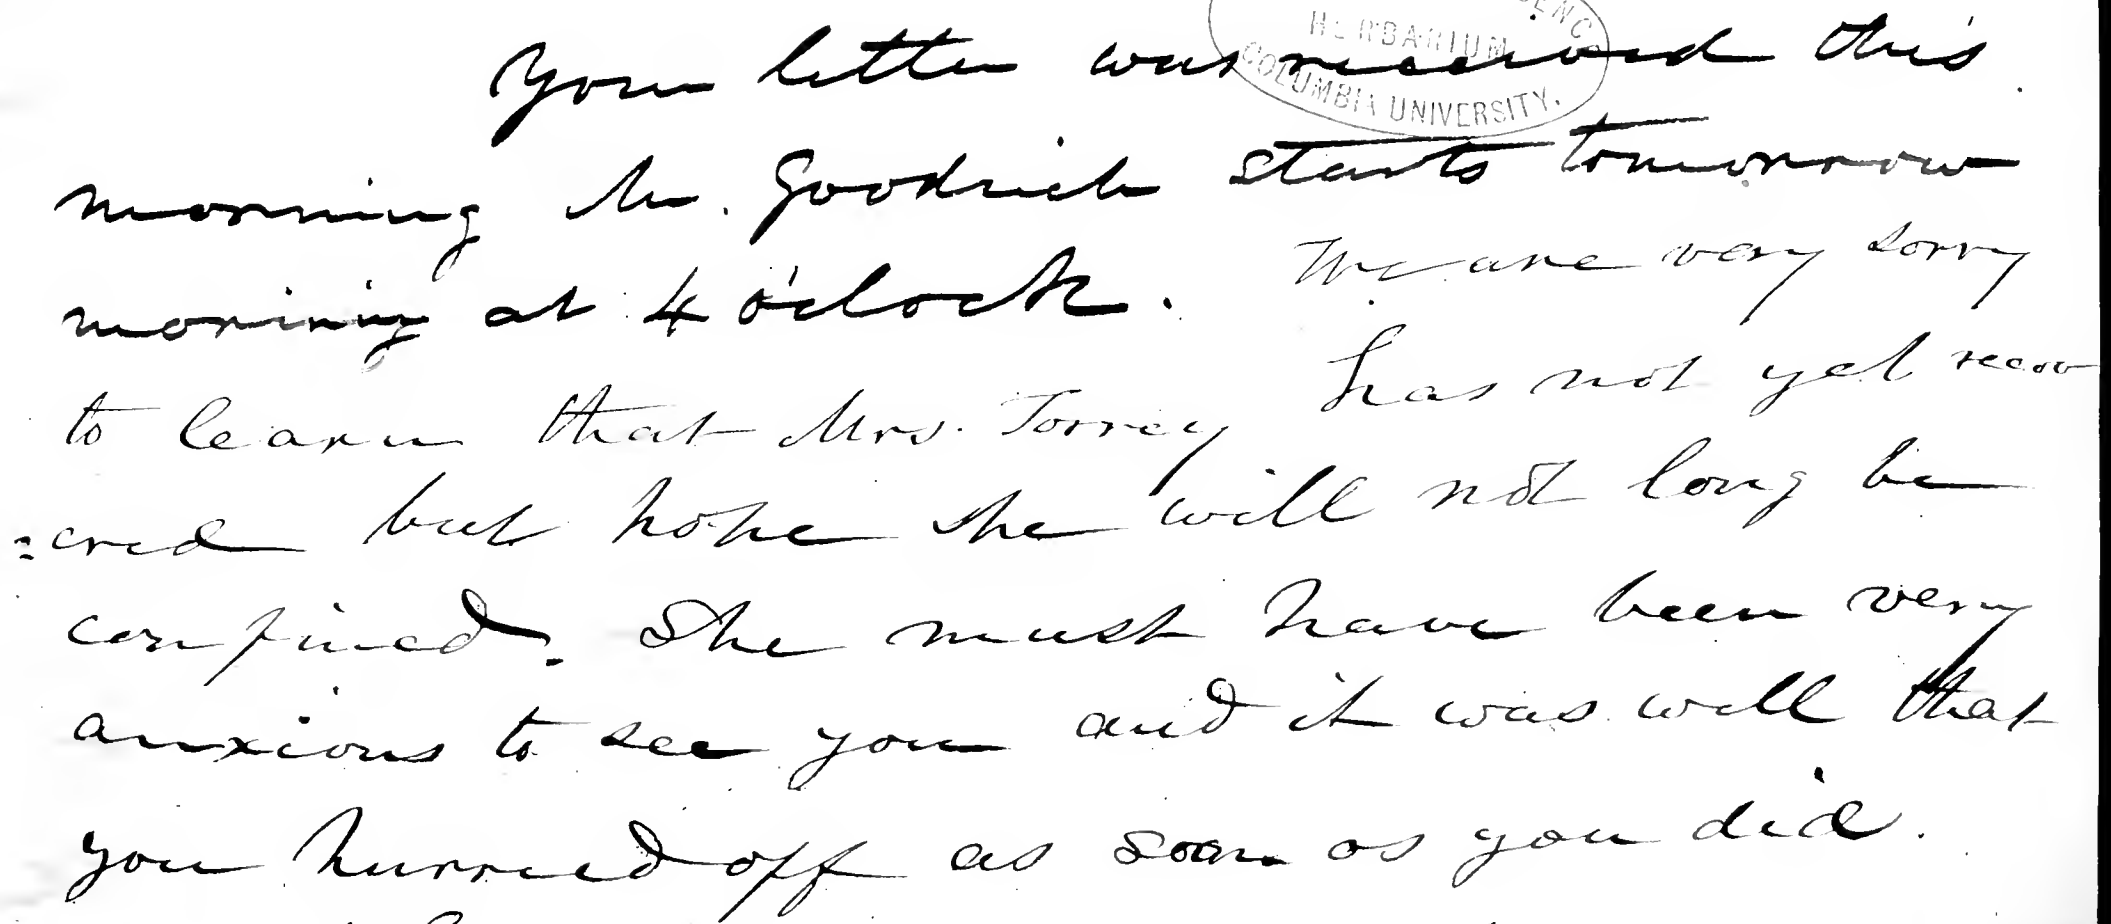 ENC
HERBARIUM
COLUMBIA UNIVERSITY.
Your letter was received this
morning Mr. Goodrich starts tomorrow
morning at 4 o'clock. We are very sorry
to learn that Mrs. Torrey has not yet recov
=ered but hope she will not long be
confined. She must have been very
anxious to see you and it was well that
you hurried off as soon as you did.